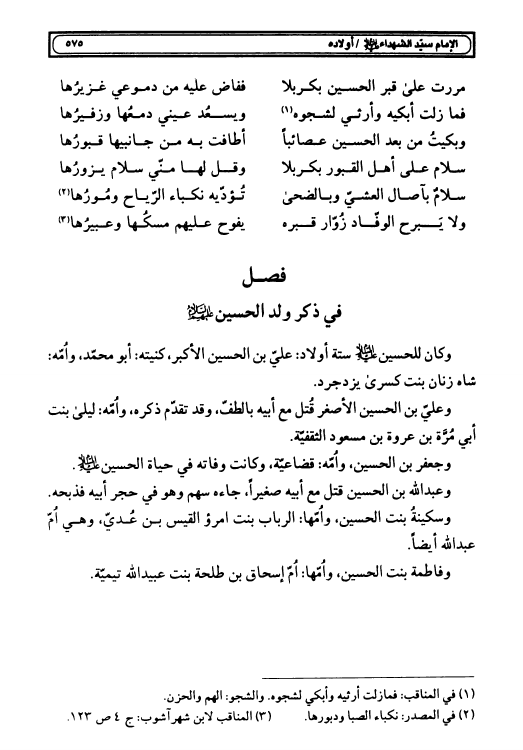 الإمام سيّد الشهداء عليه السلام / أولاده ٥٧٥
مررت علىٰ قبر الحسين بكربلا ففاض عليه من دموعي غزيرُها
فما زلت أبكيه وأرثي لشجوه(١) ويسعُد عيني دمعُها وزفيرُها
وبكيتُ من بعد الحسين عصائباً أطافت به من جانبيها قبورُها
سلام على أهل القبور بكربلا وقل لها منّي سلام يزورُها
سلامٌ بآصال العشيّ وبالضحىٰ تُؤدّيه نكباء الرّياح ومُورُها(٢)
ولا يَبرح الوفّاد زُوّار قبره يفوح عليهم مسكُها وعبيرُها(٣)
فصل
في ذكر ولد الحسين عليه السلام
وكان للحسين عليه السلام ستة أولاد: عليّ بن الحسين الأكبر، كنيته: أبو محمّد، وأُمّه:
شاه زنان بنت كسرىٰ يزدجرد.
وعليّ بن الحسين الأصغر قُتل مع أبيه بالطفّ، وقد تقدّم ذكره، وأُمّه: ليلىٰ بنت
أبي مُرَّة بن عروة بن مسعود الثقفيّة.
وجعفر بن الحسين، وأُمّه: قضاعيّة، وكانت وفاته في حياة الحسين عليه السلام.
وعبدالله بن الحسين قتل مع أبيه صغيراً، جاءه سهم وهو في حجر أبيه فذبحه.
وسكينةُ بنت الحسين، وأُمّها: الرباب بنت امرؤ القيس بن عُديّ، وهي أُمّ
عبدالله أيضاً.
وفاطمة بنت الحسين، وأُمّها: أُمّ إسحاق بن طلحة بنت عبيدالله تيميّة.
(١) في المناقب: فمازلت أرثيه وأبكي لشجوه. والشجو: الهم والحزن.
(٢) في المصدر: نكباء الصبا ودبورها. (٣) المناقب لابن شهرآشوب: ج ٤ ص ١٢٣.